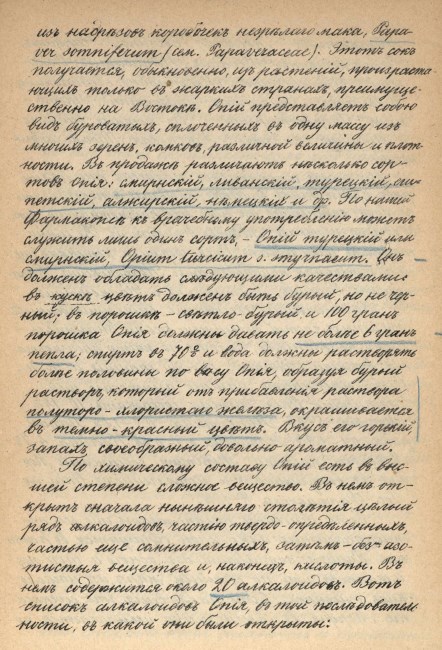 изъ надрѣзовъ коробочекъ незрѣлаго мака, Papa-
ver somniferum (сем. Papaveraceae). Этотъ сокъ
получается, обыкновенно, изъ растеній, произраста-
ющихъ только въ жаркихъ странахъ, преимуще-
ственно на Востокѣ. Опій представляетъ собою
видъ буроватыхъ, сплоченныхъ въ одну массу изъ
многихъ зеренъ, комковъ, различной величины и плот-
ности. Въ продажѣ различаютъ нѣсколько сор-
товъ Опія: смирнскій, ливанскій, турецкій, еги-
петскій, алжирскій, нѣмецкій и др. По нашей
Фармакопеѣ къ врачебному употребленію можетъ
служить лишь одинъ сортъ, – Опій турецкій или
смирнскій, Opium turcicum s. smyrnaeum. Онъ
долженъ обладать слѣдующими качествами:
въ кускѣ цвѣтъ долженъ быть бурый, но не чер-
ный; въ порошкѣ – свѣтло-бурый и 100 гранъ
порошка Опія должны давать не болѣе 6 гранъ
пепла; спиртъ въ 70% и вода должны растворять
болѣе половины по вѣсу Опія, образуя бурый
растворъ, который отъ прибавленія раствора
полуторо-хлористаго желѣза, окрашивается
въ темно-красный цвѣтъ. Вкусъ его горькій,
запахъ своеобразный, довольно ароматный.
По химическому составу Опій есть въ выс-
шей степени сложное вещество. Въ немъ от-
крытъ сначала нынѣшняго столѣтія цѣлый
рядъ алкалоидовъ, частію твердо-опредѣленныхъ,
частью еще сомнительныхъ, затѣмъ – без-азо-
тистыя вещества и, наконецъ, кислоты. Въ
немъ содержится около 20 алкалоидовъ. Вотъ
списокъ алкалоидовъ Опія, въ той послѣдователь-
ности, въ какой они были открыты: